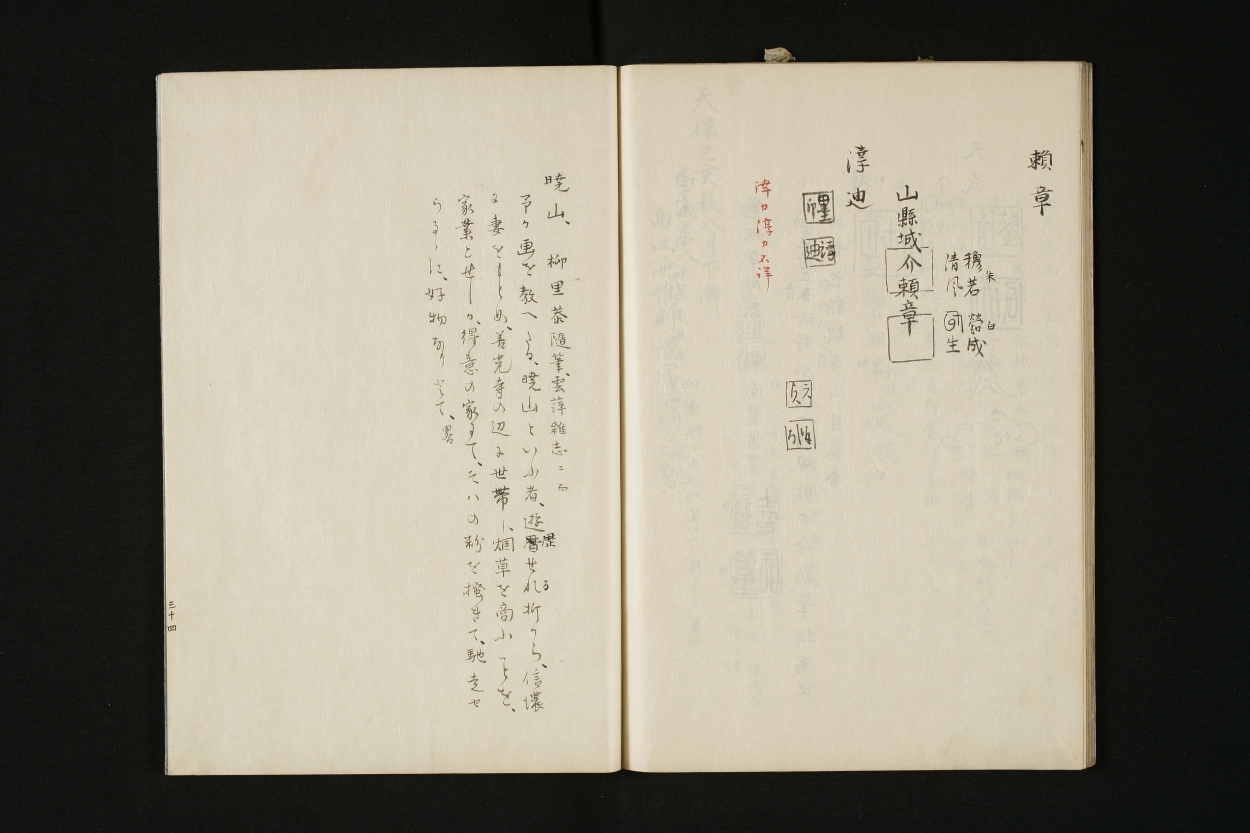 頼章
山縣城介頼章
穆若 朱
清風
営成 白
生
淳迪
諱カ淳カ不詳
暁山、柳里恭随筆、雲萍雑志ニ云
予か画を教へたる、暁山といふ者、遊暦歴せれる折から、信濃
に妻をもとめ、善光寺の辺に世帯し、烟草を商ふことを、
家業とせしか、得意の家にて、そハの粉を挽きて、馳走せ
らるゝに、好物なりとて、畧
三十四